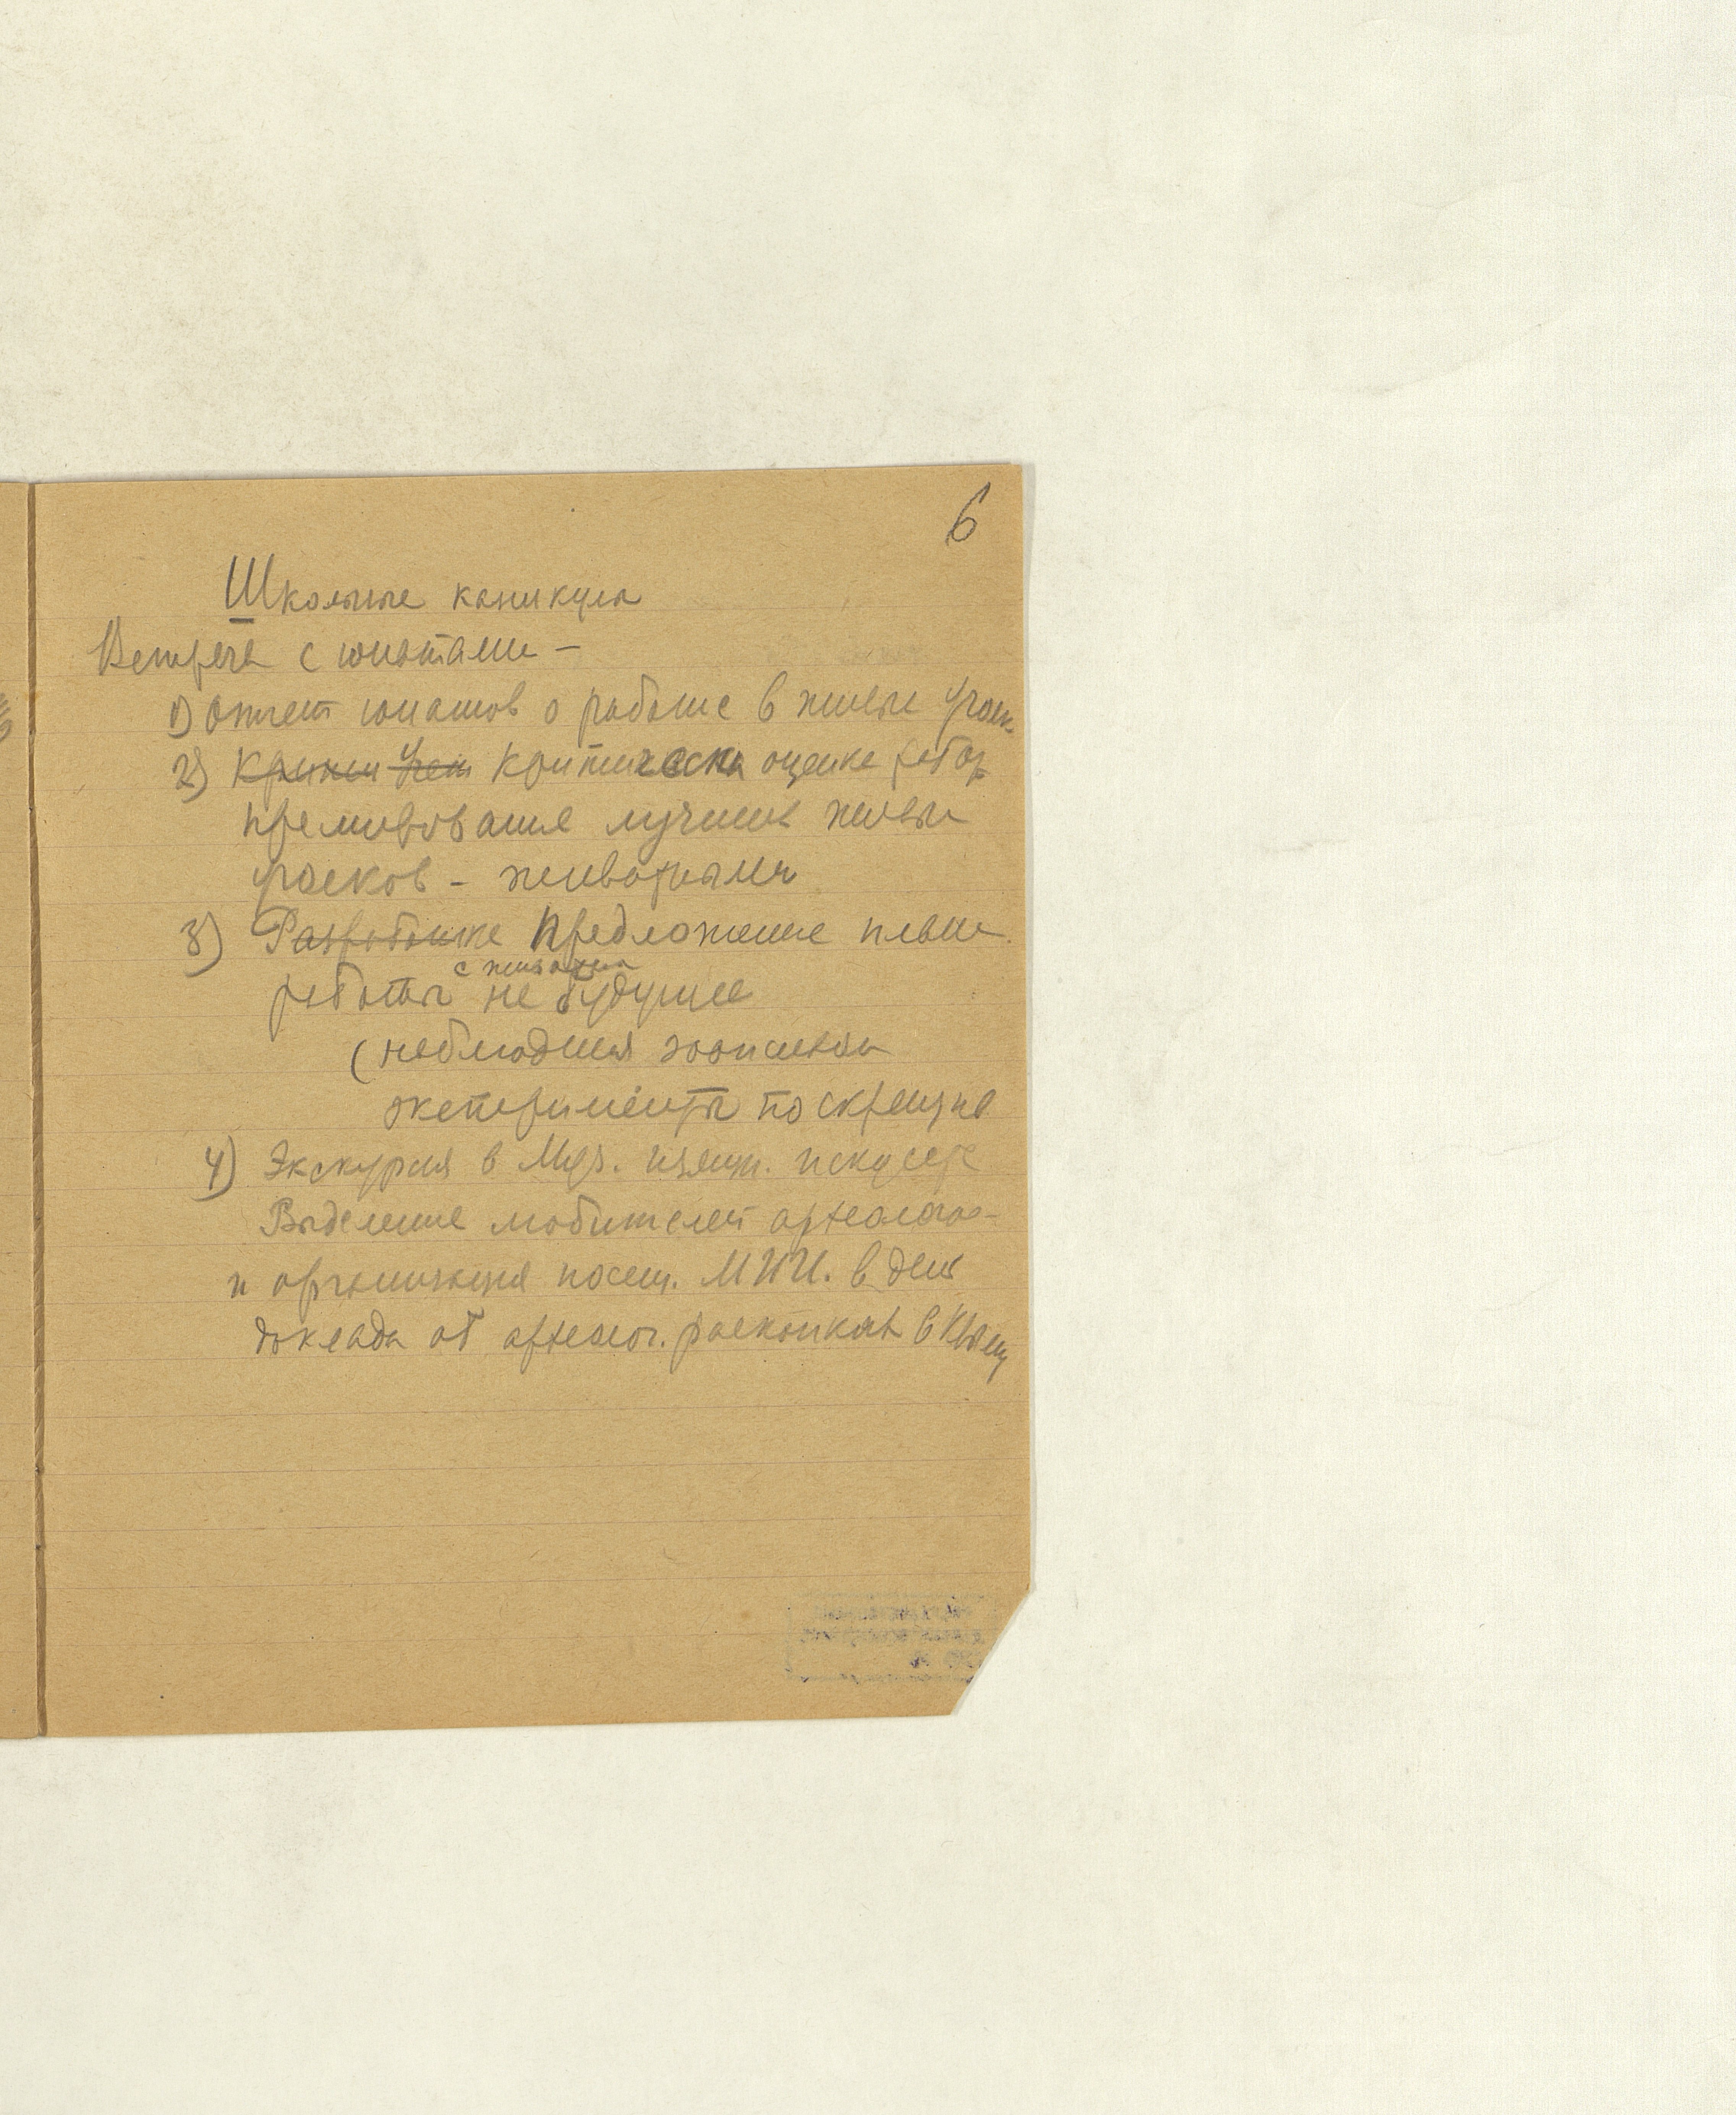 6
Школьные каникулы
Встреча с юннатами —
1) Отчет юннатов о работе в живых угол.
2) Критическая оценка работ
премирование лучших живых
уголков - животными
3) Разработка Предложение плана
с живыми
работы на будущее
(наблюдения зоописьма
эксперименты по скрещив
4) Экскурсия в Муз. изящ. искусств
Выделение любителей археолог-
и организация посещ. МИИ. в день
доклада об археолог. раскопках в